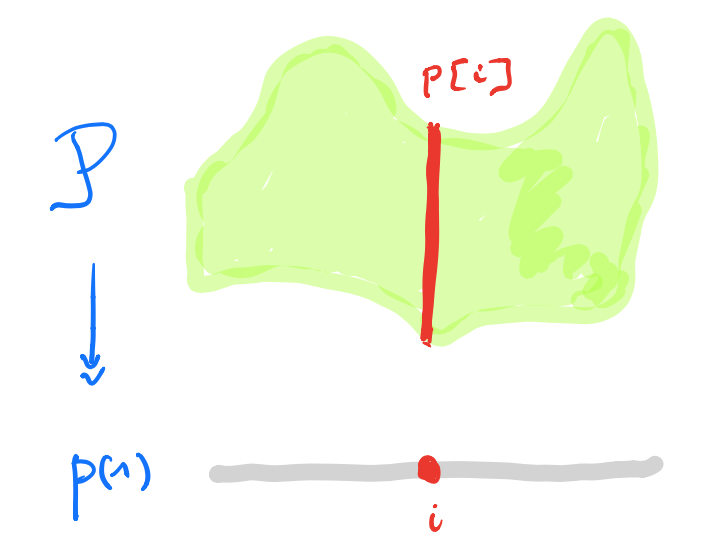 p[i]
P
p(1)
i